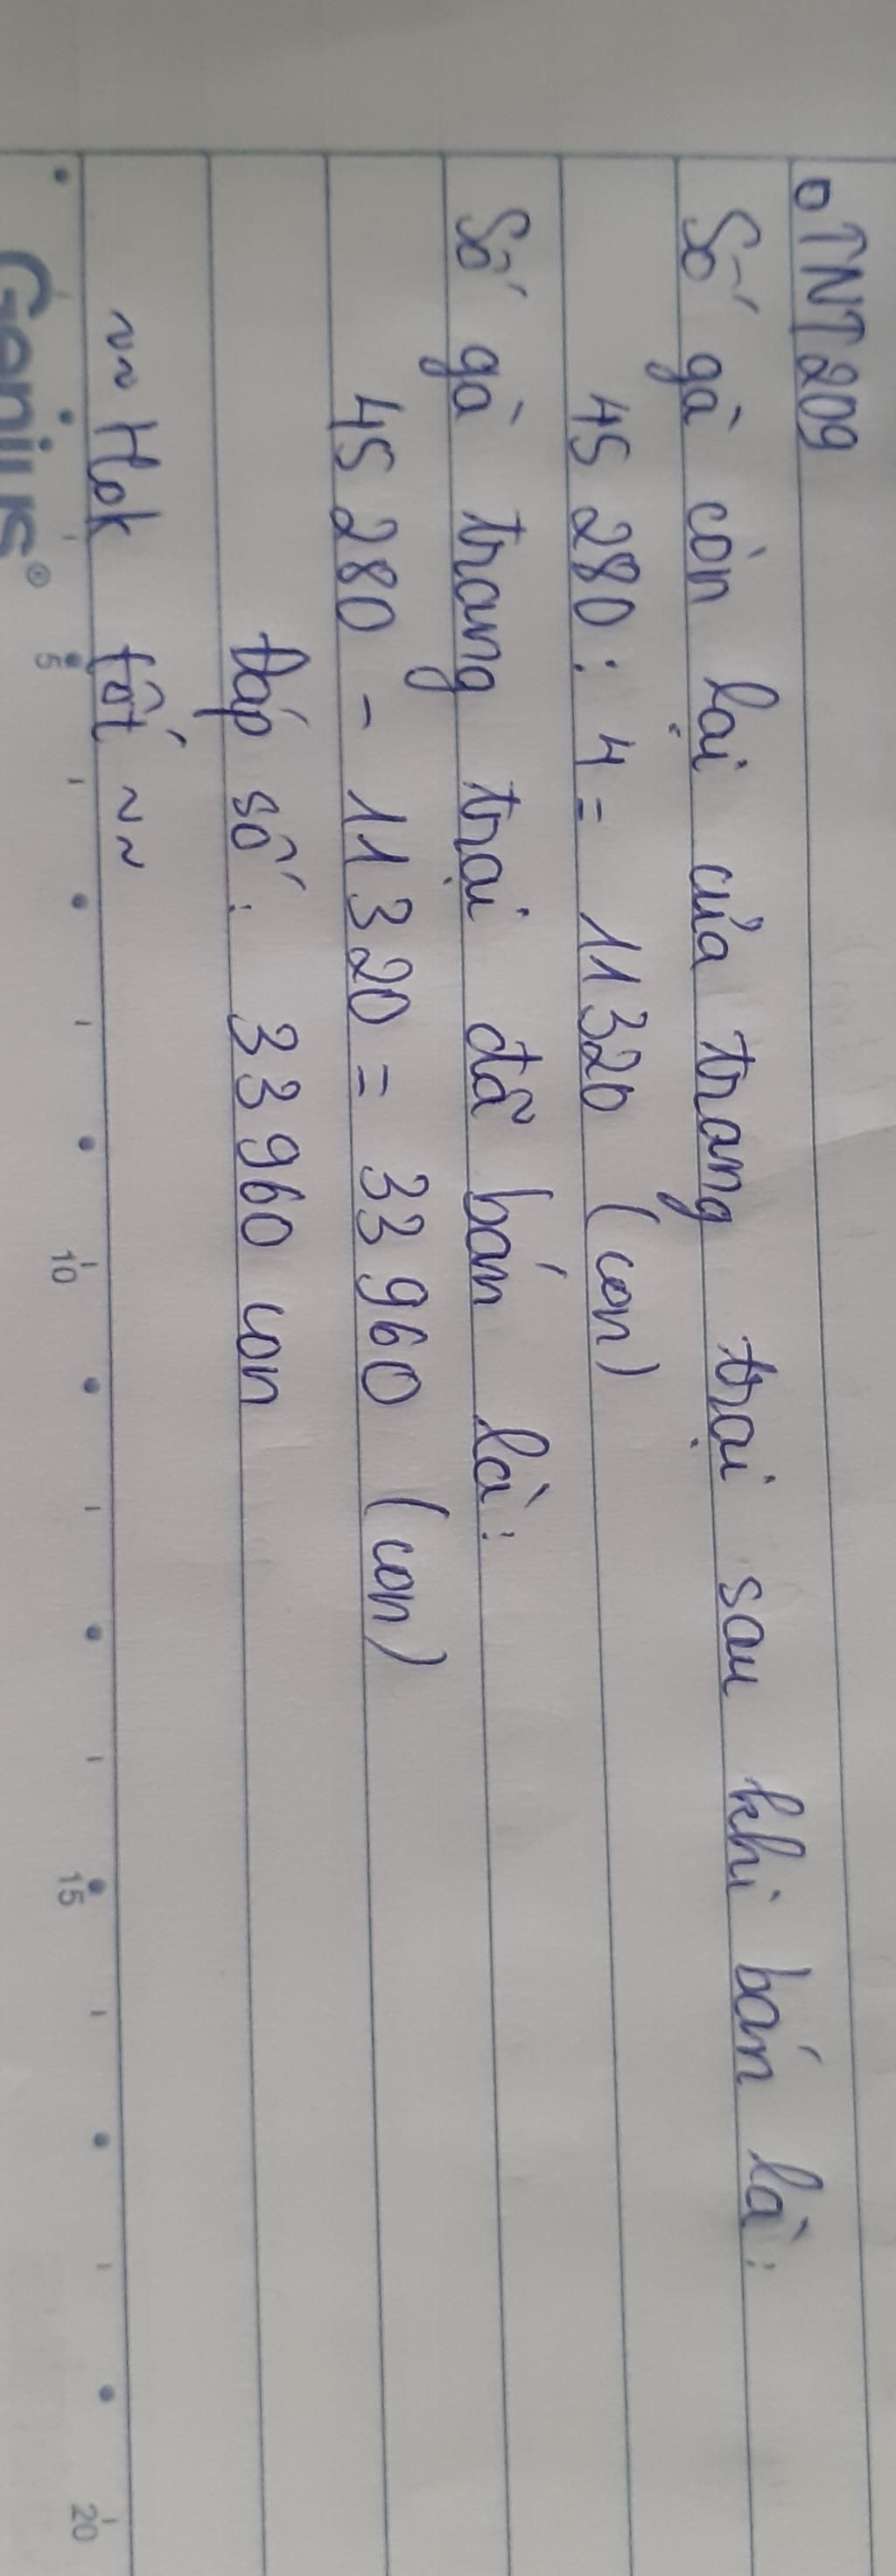 TNT209
Số gà còn lại của trang trại sau khi bán là:
45 280 : 4 = 11 320 (con)
Số gà trang trại đã bán là:
45 280 - 11 320 = 33 960 (con)
Đáp số: 33 960 con
~~ Hok tốt ~~
Genius®
5 10 15 20